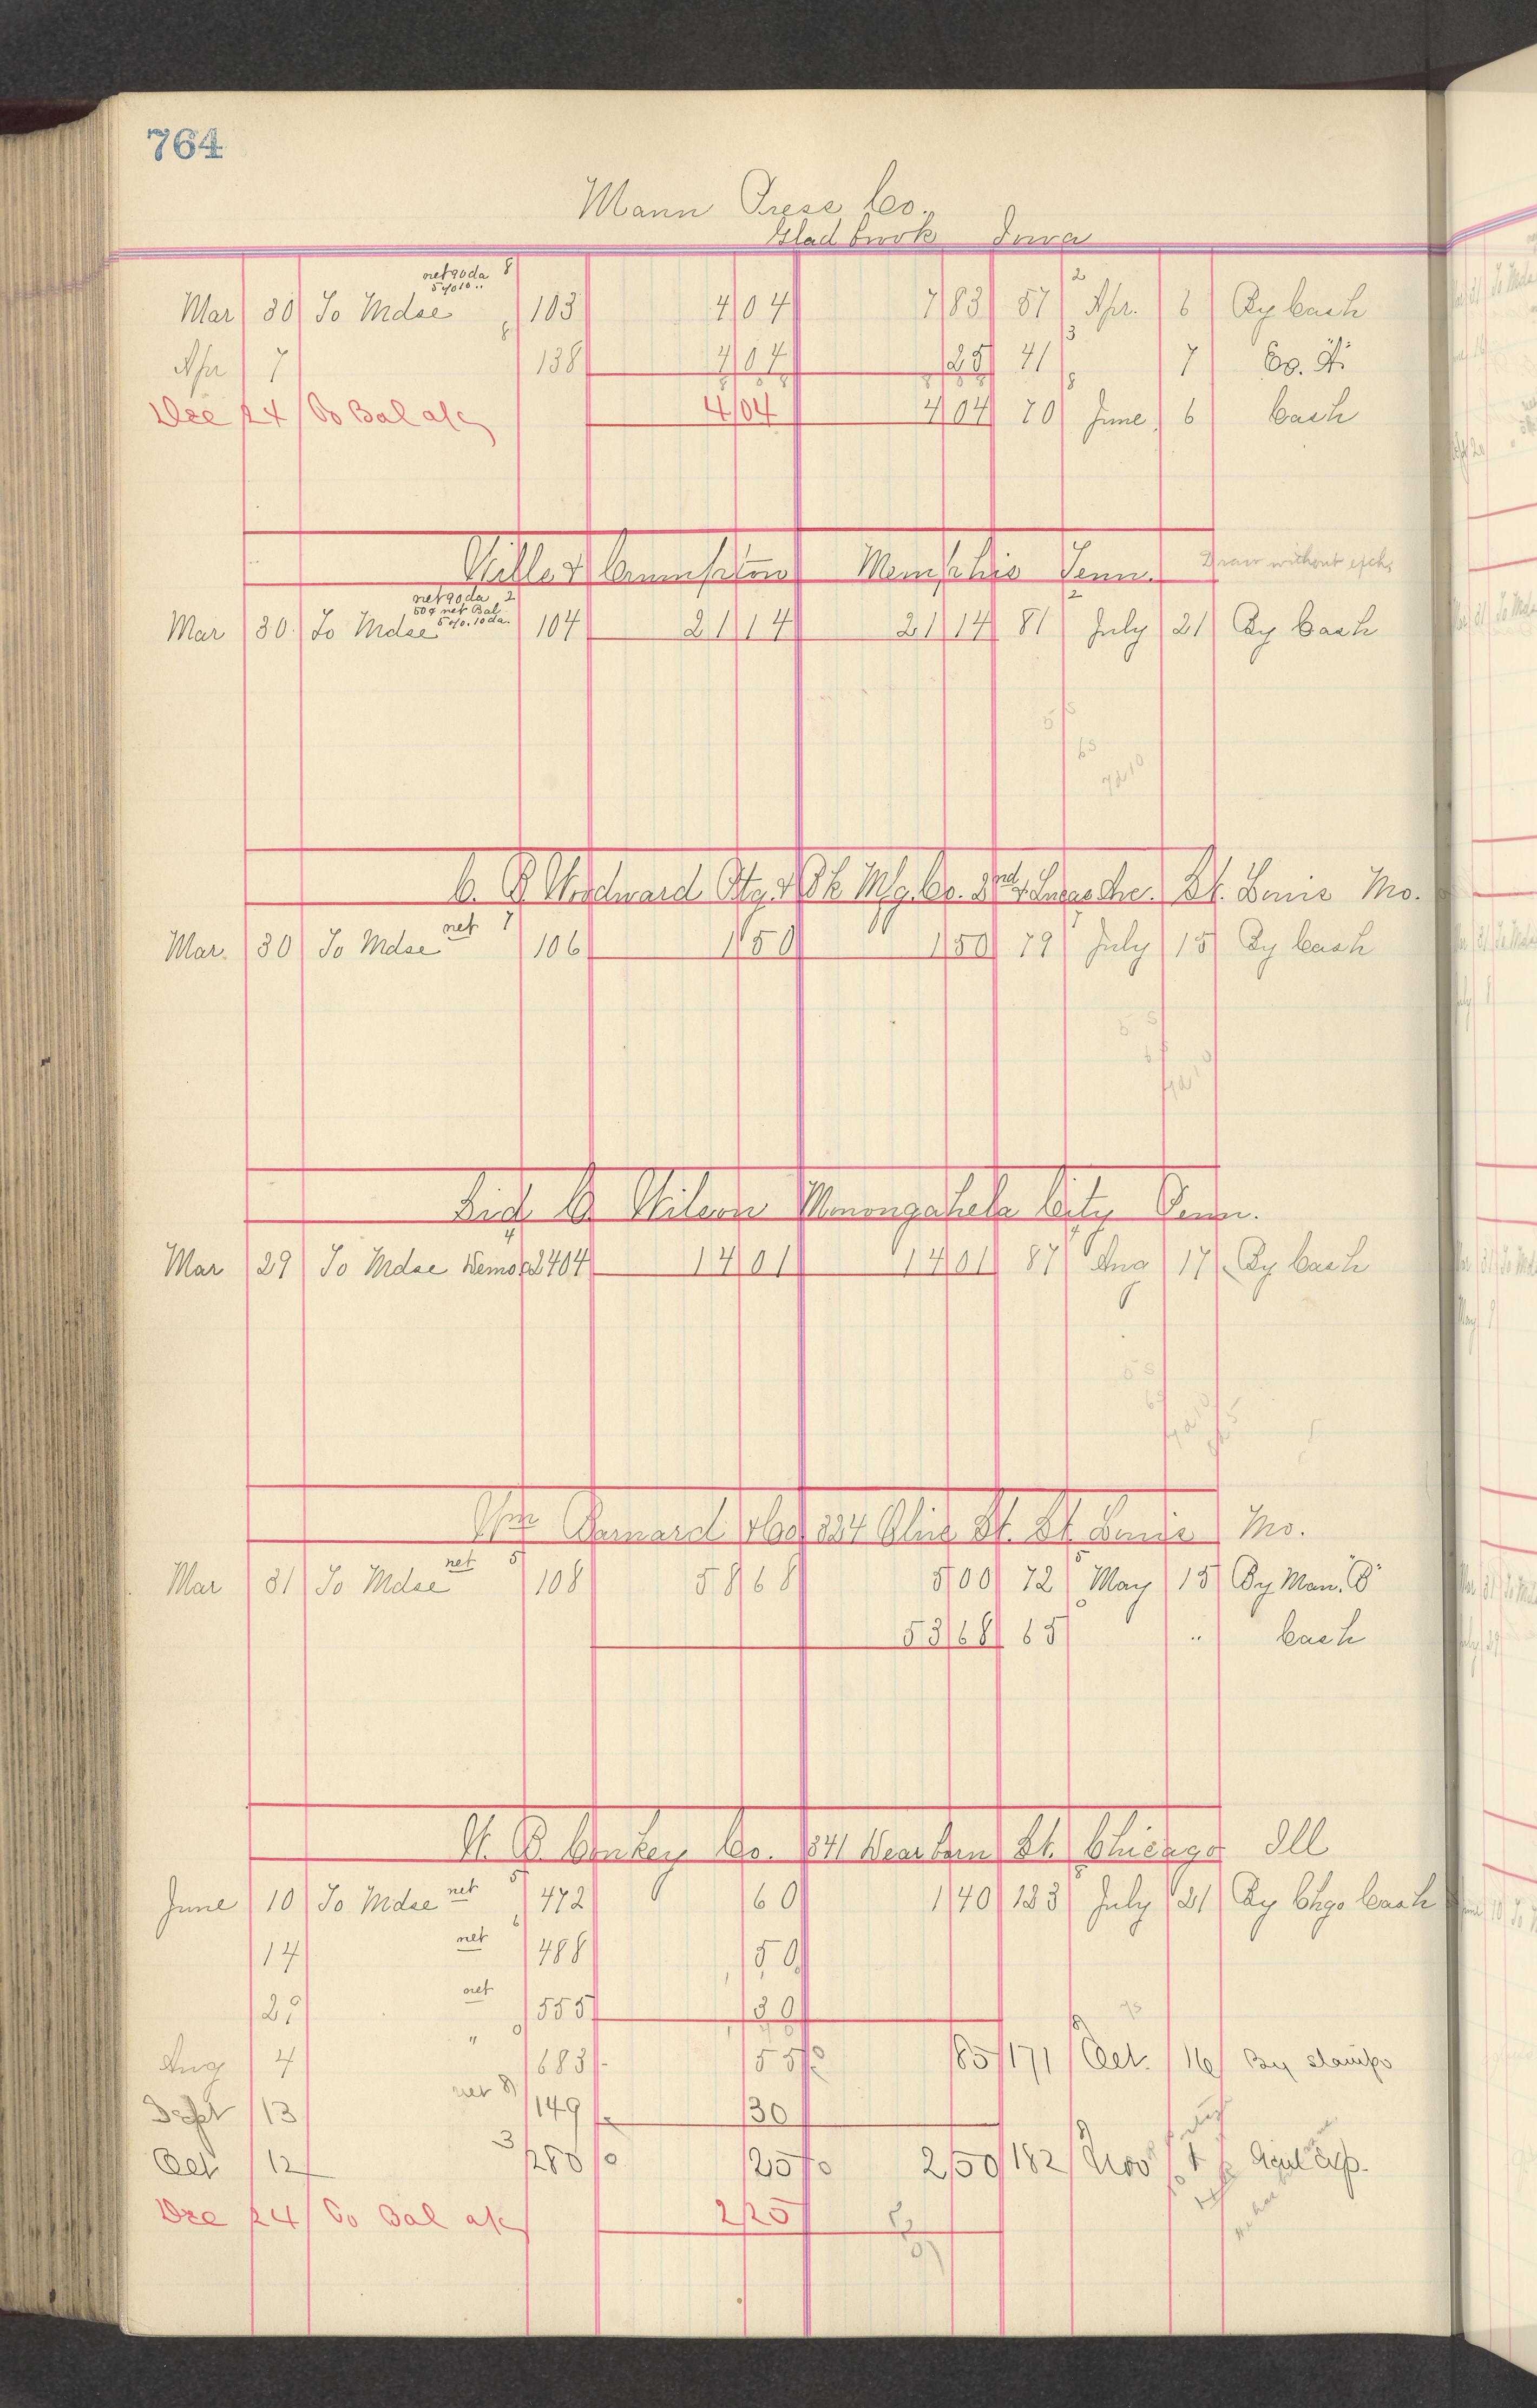 764
Mann Press Co.
Gladbrook Iowa
net 90 da 8
5% 10 ..
Mar 30 To Mdse 103 4 04 7 83 57 Apr. 6 By Cash
Apr 7 138 4 04 25 41 7 Ex.
Dec 24 To Bal a/c 4 04 4 04 70 June 6 Cash
Wills & Crumpton Memphis Tenn. Draw without exch.
net 90 da 2
50¢ net Bal.
5% 10 da.
Mar 30 To Mdse 104 21 14 21 14 81 July 21 By Cash
5 5
6 5
7 d 10
C. B. Woodward Ptg. & Bk Mfg. Co. 2nd & Locust St. Louis Mo.
Mar. 30 To Mdse net 7 106 1 50 1 50 79 July 15 By Cash
Wilson Monongahela City Penn.
Mar 29 To Mdse Memo 2404 14 01 14 01 87 Aug 17 By Cash
Wm Barnard & Co St. St. Louis Mo.
Mar 31 To Mdse net 5 108 58 68 5 00 72 May 15 By Man. "B"
53 68 65 " Cash
W. B. Conkey Co. 341 Dearborn St. Chicago Ill
June 10 To Mdse net 5 472 60 1 40 133 July 21 By Chgo Cash
14 net 6 488 50
29 net 555 30
Aug 4 " 683 55 85 171 Oct. 16 By stamps
Sept 13 net 8 149 30
Oct 12 3 280 2 50 182 Nov 1 Exp.
Dec 24 To Bal a/c 2 25